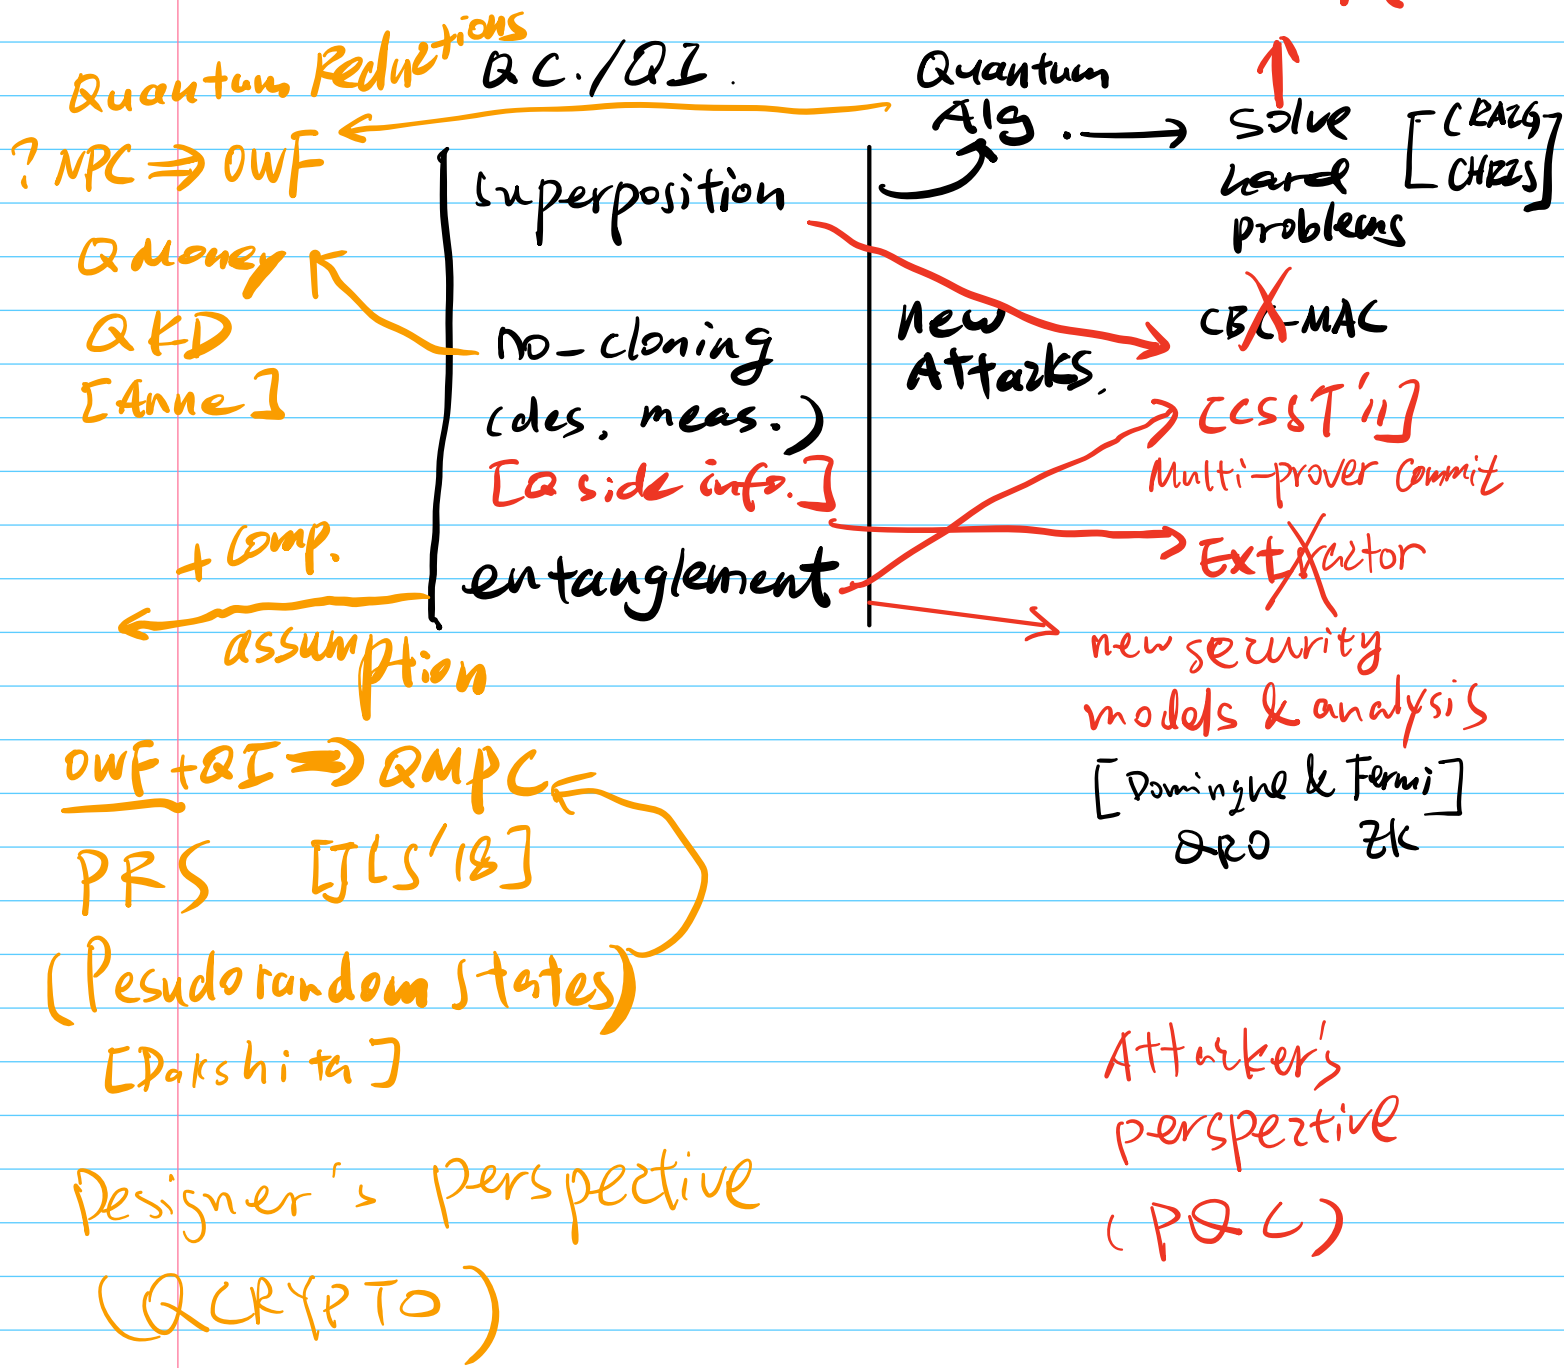 Quantum Reductions
? NPC ⇒ OWF
Q Money
QKD
[Anne]
+ Comp.
assumption
OWF + QI ⇒ QMPC
PRS [JLS'18]
(Pesudorandom states)
[Dakshita]
Designer's perspective
(QCRYPTO)
QC./QI.
superposition
no-cloning
(des. meas.)
[Q side info.]
entanglement
Quantum
Alg.
New
Attacks.
Solve
hard
problems
CBC-MAC
[CSST'11]
Multi-prover Commit
Extractor
new security
models & analysis
[Dominque & Fermi]
QRO ZK
Attacker's
perspective
(PQC)